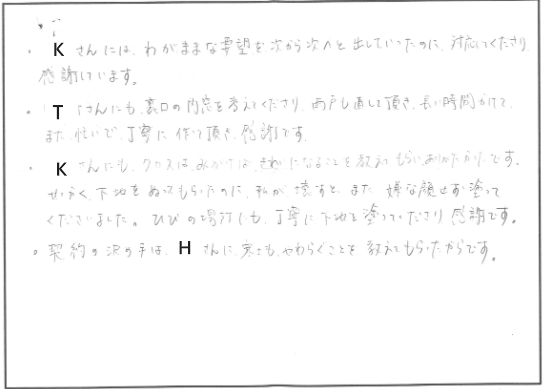 ・Kさんには、わがままな要望を次から次へと出していったのに、対応してくださり、
感謝しています。
・Tさんにも、裏口の内窓を考えてくださり、雨戸も直して頂き、長い時間かけて、
また、忙いで、丁寧に作って頂き、感謝です。
・Kさんにも、クロスは、みかけは、きれいになることを教えてもらいありがたかったです。
せっかく、下地をぬってもらったのに、私が壊すと、また、嫌な顔せず塗って
くださいました。ひびの場所にも、丁寧に下地を塗ってくださり感謝です。
・契約の決め手は、Hさんに、京土も、やわらぐことを教えてもらったからです。